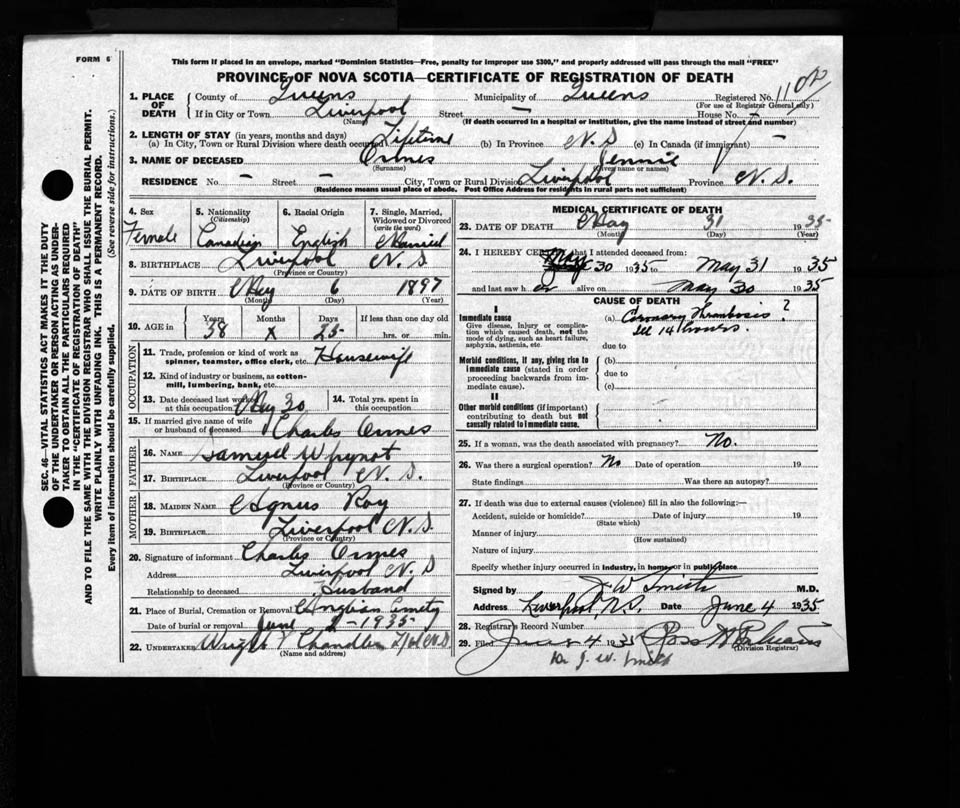 FORM 6
This form if placed in an envelope, marked "Dominion Statistics—Free, penalty for improper use $300," and properly addressed will pass through the mail "FREE"
PROVINCE OF NOVA SCOTIA—CERTIFICATE OF REGISTRATION OF DEATH
SEC. 46—VITAL STATISTICS ACT MAKES IT THE DUTY
OF THE UNDERTAKER OR PERSON ACTING AS UNDER-
TAKER TO OBTAIN ALL THE PARTICULARS REQUIRED
IN THE "CERTIFICATE OF REGISTRATION OF DEATH"
AND TO FILE THE SAME WITH THE DIVISION REGISTRAR WHO SHALL ISSUE THE BURIAL PERMIT.
WRITE PLAINLY WITH UNFADING INK. THIS IS A PERMANENT RECORD.
Every item of information should be carefully supplied. (See reverse side for instructions.)
1. PLACE OF DEATH
County of Queens Municipality of Queens Registered No.
(For use of Registrar General only)
If in City or Town Liverpool Street — House No.
(Name) (If death occurred in a hospital or institution, give the name instead of street and number)
2. LENGTH OF STAY (in years, months and days)
(a) In City, Town or Rural Division where death occurred Lifetime (b) In Province N.S (c) In Canada (if immigrant) —
3. NAME OF DECEASED Ormes Jennie
(Surname) (Given name or names)
RESIDENCE No. — Street — City, Town or Rural Division Liverpool Province N.S.
(Residence means usual place of abode. Post Office Address for residents in rural parts not sufficient)
4. Sex Female
5. Nationality (Citizenship) Canadian
6. Racial Origin English
7. Single, Married, Widowed or Divorced (write the word) Married
8. BIRTHPLACE Liverpool N.S
(Province or Country)
9. DATE OF BIRTH May 6 1897
(Month) (Day) (Year)
10. AGE in Years 38 Months x Days 25 If less than one day old
hrs. or min.
OCCUPATION
11. Trade, profession or kind of work as Housewife
spinner, teamster, office clerk, etc.
12. Kind of industry or business, as cotton-
mill, lumbering, bank, etc.
13. Date deceased last worked at this occupation May 30
14. Total yrs. spent in this occupation
15. If married give name of wife or husband of deceased Charles Ormes
FATHER
16. NAME Samuel Whynot
17. BIRTHPLACE Liverpool N.S.
(Province or Country)
MOTHER
18. MAIDEN NAME Agnes Roy
19. BIRTHPLACE Liverpool N.S.
(Province or Country)
20. Signature of informant Charles Ormes
Address Liverpool N.S
Relationship to deceased Husband
21. Place of Burial, Cremation or Removal Anglican Cemetry
Date of burial or removal June 2-1935
22. UNDERTAKER Wright Chandler
(Name and address)
MEDICAL CERTIFICATE OF DEATH
23. DATE OF DEATH May 31 1935
(Month) (Day) (Year)
24. I HEREBY CERTIFY that I attended deceased from:
May 30 1935 to May 31 1935
and last saw her alive on May 30 1935
CAUSE OF DEATH
I
Immediate cause (a) Coronary Thrombosis ?
Give disease, injury or complica-
tion which caused death, not the
mode of dying, such as heart failure,
asphyxia, asthenia, etc.
Ill 14 hours.
due to
Morbid conditions, if any, giving rise to
immediate cause (stated in order
proceeding backwards from im-
mediate cause).
(b)
due to
(c)
II
Other morbid conditions (if important)
contributing to death but not
causally related to immediate cause.
25. If a woman, was the death associated with pregnancy? No.
26. Was there a surgical operation? No Date of operation 19
State findings Was there an autopsy?
27. If death was due to external causes (violence) fill in also the following:—
Accident, suicide or homicide? Date of injury 19
(State which)
Manner of injury
(How sustained)
Nature of injury
Specify whether injury occurred in industry, in home, or in public place
Signed by J. W. Smith M.D.
Address Liverpool N.S. Date June 4 1935
28. Registrar's Record Number
29. Filed June 4 1935
(Division Registrar)
Dr J. W. Smith